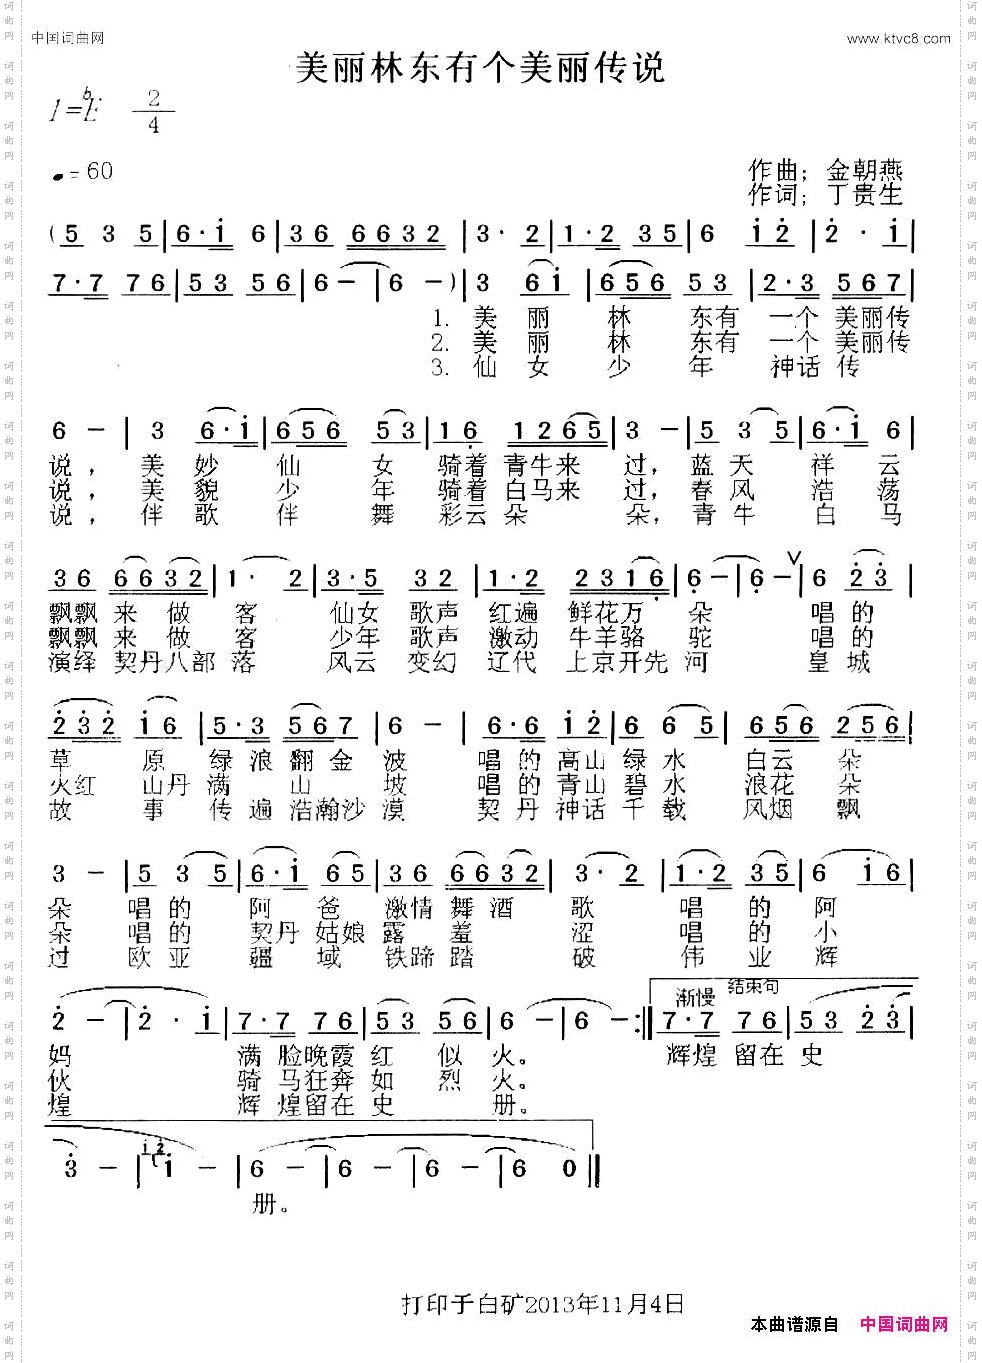 中国词曲网
www.ktvc8.com
美丽林东有个美丽传说
1=bE 2/4
♩=60
作曲；金朝燕
作词；丁贵生
(5 3 5|6·i 6|36 6632|3· 2|1·2 35|6 i2|2· i|
7·7 76|53 56|6−|6 −)|3 6i|656 53|2·3 567|
1. 美 丽 林 东有 一个 美丽传
2. 美 丽 林 东有 一个 美丽传
3. 仙 女 少 年 神话 传
6 −|3 6·i|656 53|16 1265|3 −|5 3 5|6·i 6|
说，美 妙 仙 女 骑着青牛来 过，蓝天 祥 云
说，美 貌 少 年 骑着白马来 过，春风 浩 荡
说，伴 歌 伴 舞 彩云朵 朵，青牛 白 马
36 6632|1· 2|3·5 32|1·2 2316|6 −|6 −∨|6 23|
飘飘 来 做 客 仙女 歌声 红遍 鲜花万 朵 唱的
飘飘 来 做 客 少年 歌声 激动 牛羊骆 驼 唱的
演绎 契丹八部 落 风云 变幻 辽代 上京开先 河 皇城
232 i6|5·3 567|6 −|6·6 i2|6 65|656 256|
草 原 绿 浪 翻 金 波 唱的高山绿水 白云 朵
火红 山丹 满 山 坡 唱的青山碧水 浪花 朵
故 事 传 遍 浩瀚沙 漠 契丹神话千载 风烟 飘
3 −|5 3 5|6·i 65|36 6632|3· 2|1·2 35|6 i6|
朵 唱的 阿 爸 激情舞酒 歌 唱 的 阿
朵 唱的 契丹 姑娘 露 羞 涩 唱 的 小
过 欧亚 疆 域 铁蹄踏 破 伟 业 辉
渐慢 结束句
2 −|2· i|7·7 76|53 56|6 −|6 −:‖7·7 76|53 23|
妈 满 脸晚霞 红 似 火。 辉煌 留在 史
伙 骑 马狂奔 如 烈 火。
煌 辉 煌留在 史 册。
3 −|i2i −|6 −|6 −|6 −|6 0‖
册。
打印于白矿2013年11月4日
本曲谱源自 中国词曲网